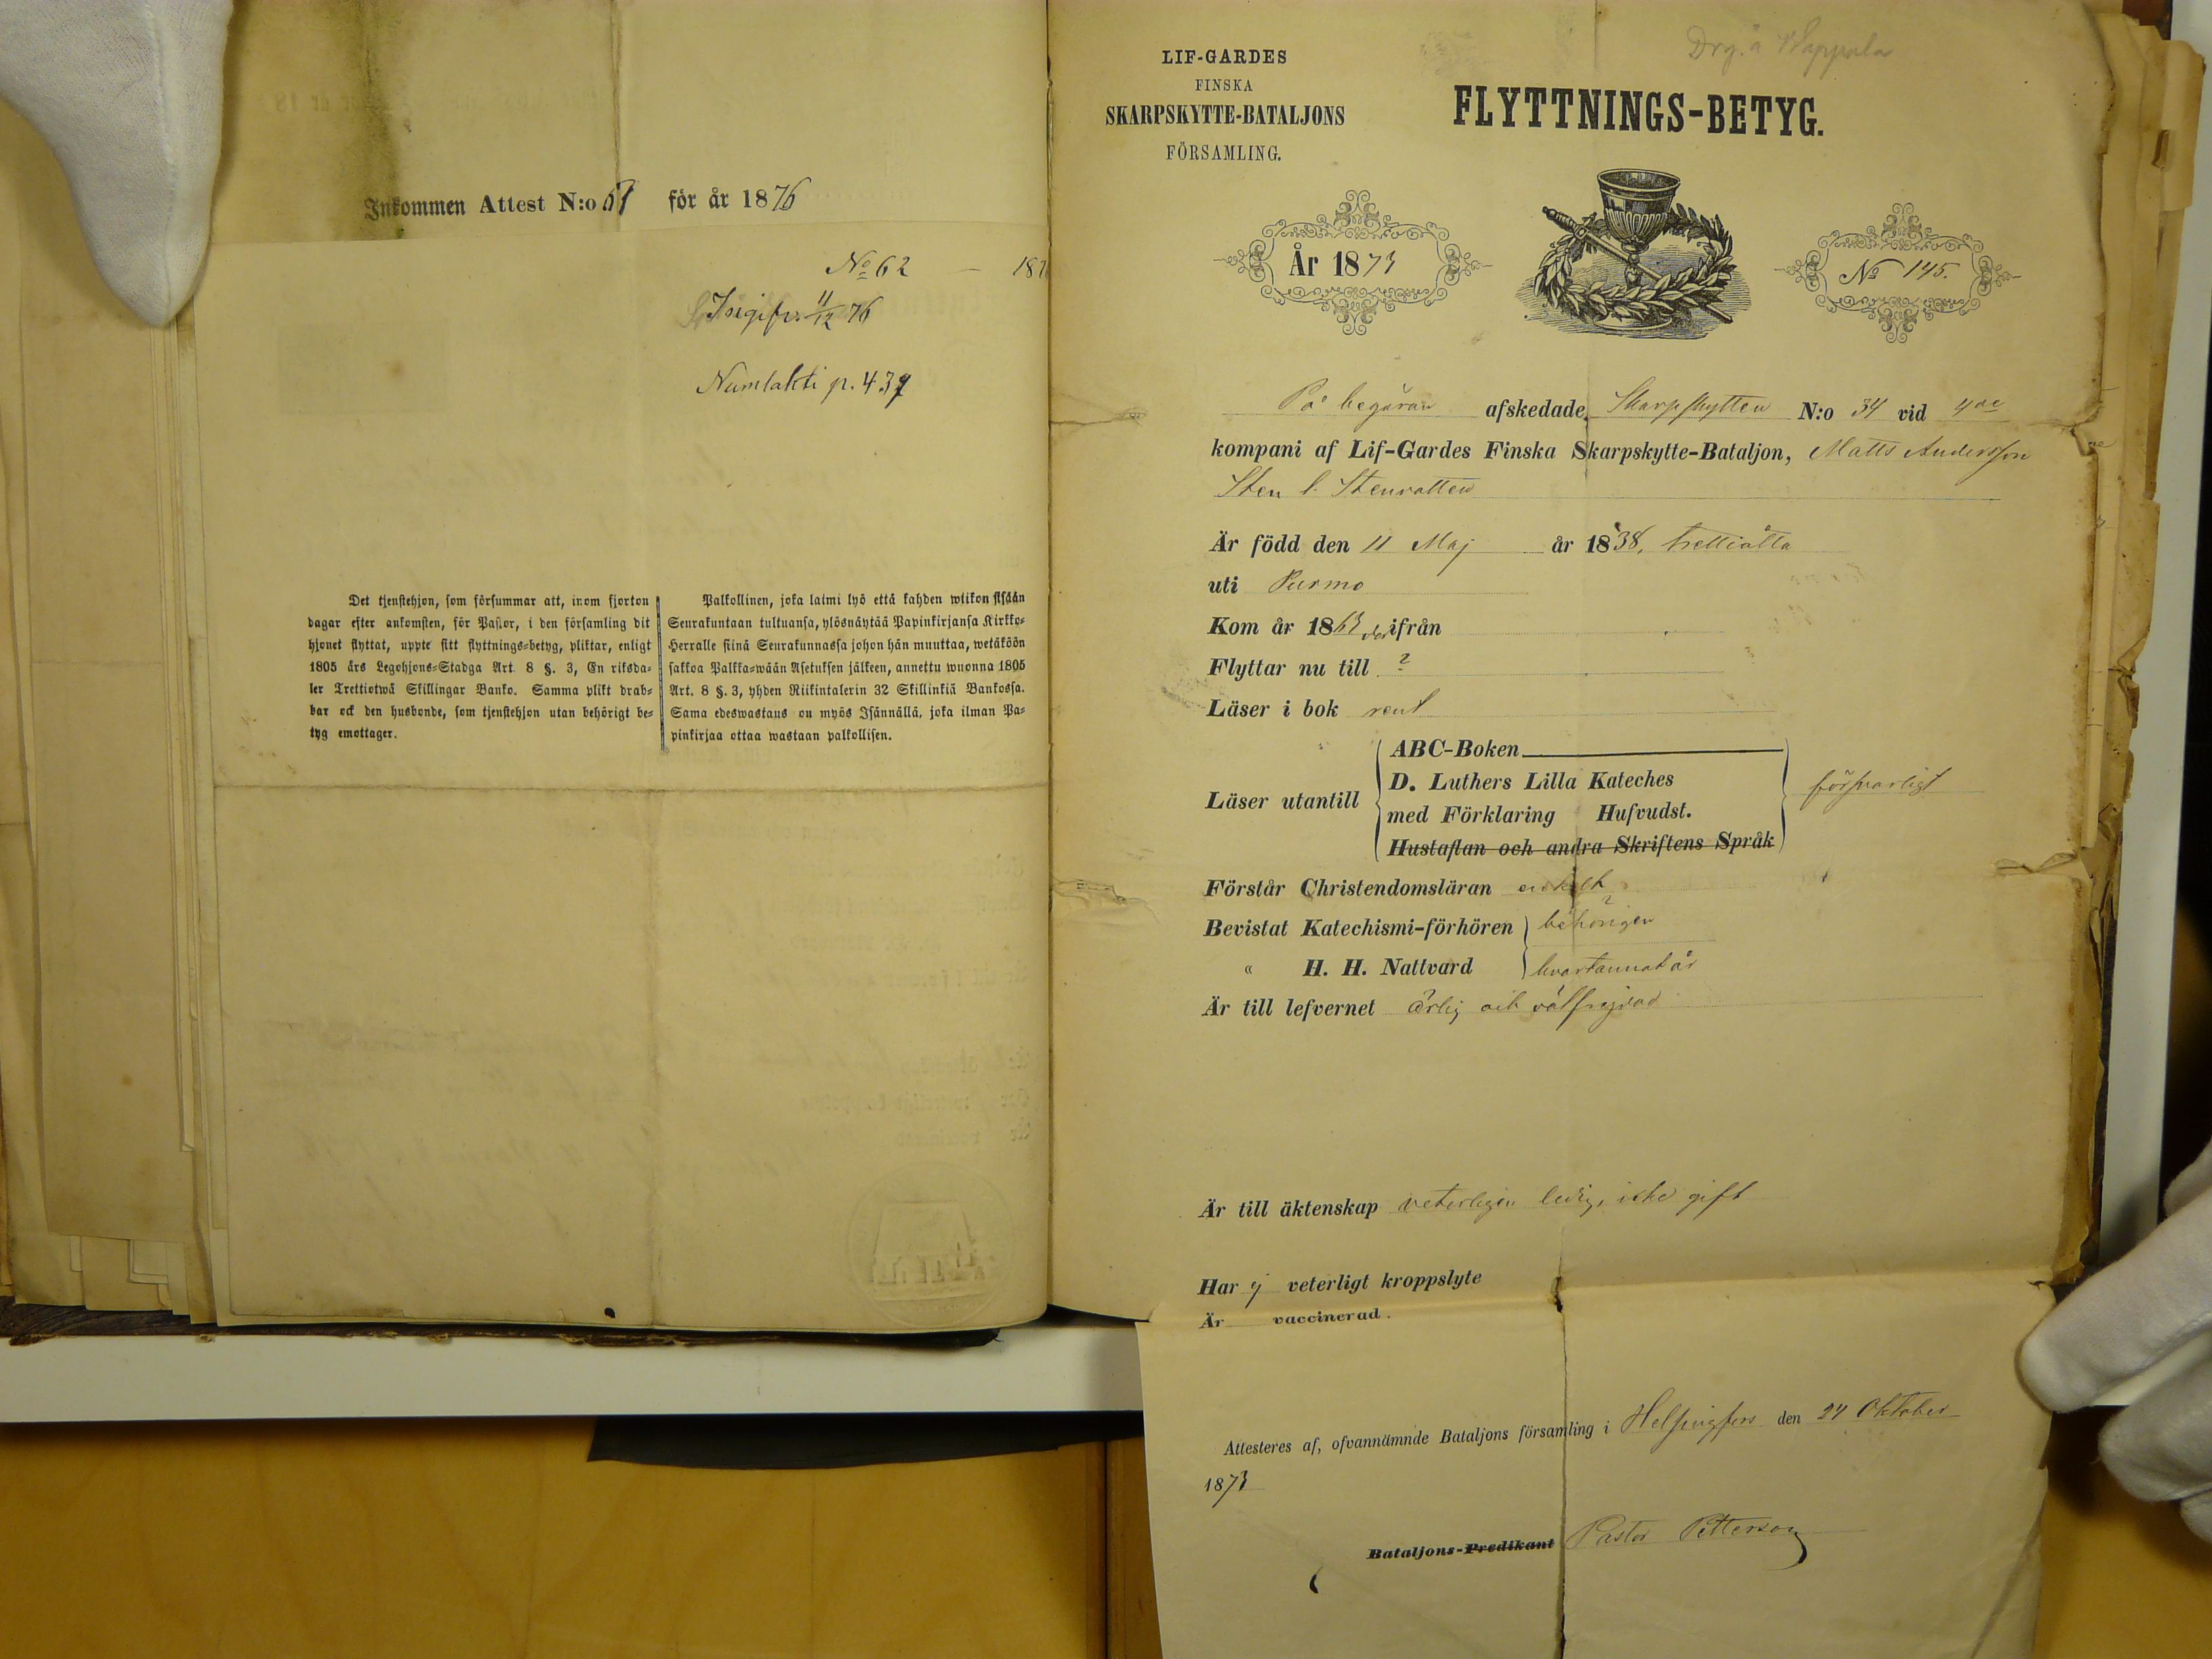 Inkommen Attest N:o 61 för år 1876
No 62 — 187
11/12 76
Numlahti p. 439
Det tjenstehjon, som försummar att, inom fjorton
dagar efter ankomsten, för Pastor, i den församling dit
hjonet flyttat, uppte sitt flyttnings=betyg, pliktar, enligt
1805 års Legohjons=Stadga Art. 8 §. 3, En riksda=
ler Trettiotwå Skillingar Banko. Samma plikt drab=
bar ock den husbonde, som tjenstehjon utan behörigt be=
tyg emottager.
Palkollinen, joka laimi lyö että kahden wiikon sisään
Seurakuntaan tultuansa, ylösnäytää Papinkirjansa Kirkko=
Herralle siinä Seurakunnassa johon hän muuttaa, wetäköön
sakkoa Palkka=wään Asetuksen jälkeen, annettu wuonna 1805
Art. 8 §. 3, yhden Riikintalerin 32 Skillinkiä Bankossa.
Sama edeswastaus on myös Isännällä, joka ilman Pa=
pinkirjaa ottaa wastaan palkollisen.
Drg. å Wappala
LIF-GARDES
FINSKA
SKARPSKYTTE-BATALJONS
FÖRSAMLING.
FLYTTNINGS-BETYG.
År 1873
No 145.
På begäran afskedade Skarpskytten N:o 34 vid 4de
kompani af Lif-Gardes Finska Skarpskytte-Bataljon, Matts Andersson
Sten l. Stenvatten
Är född den 11 Maj år 1838, trettioåtta
uti Purmo
Kom år 1863 derifrån
Flyttar nu till ?
Läser i bok rent
Läser utantill
ABC-Boken
D. Luthers Lilla Kateches
med Förklaring Hufvudst.
Hustaflan och andra Skriftens Språk
försvarligt
Förstår Christendomsläran enkelt
Bevistat Katechismi-förhören behörigen
" H. H. Nattvard hvartannat år
Är till lefvernet ärlig och välfrejdad
Är till äktenskap veterligen ledig, icke gift
Har ej veterligt kroppslyte
Är vaccinerad.
Attesteres af, ofvannämnde Bataljons församling i Helsingfors den 24 Oktober
1873
Bataljons-Predikant Pastor Petterson